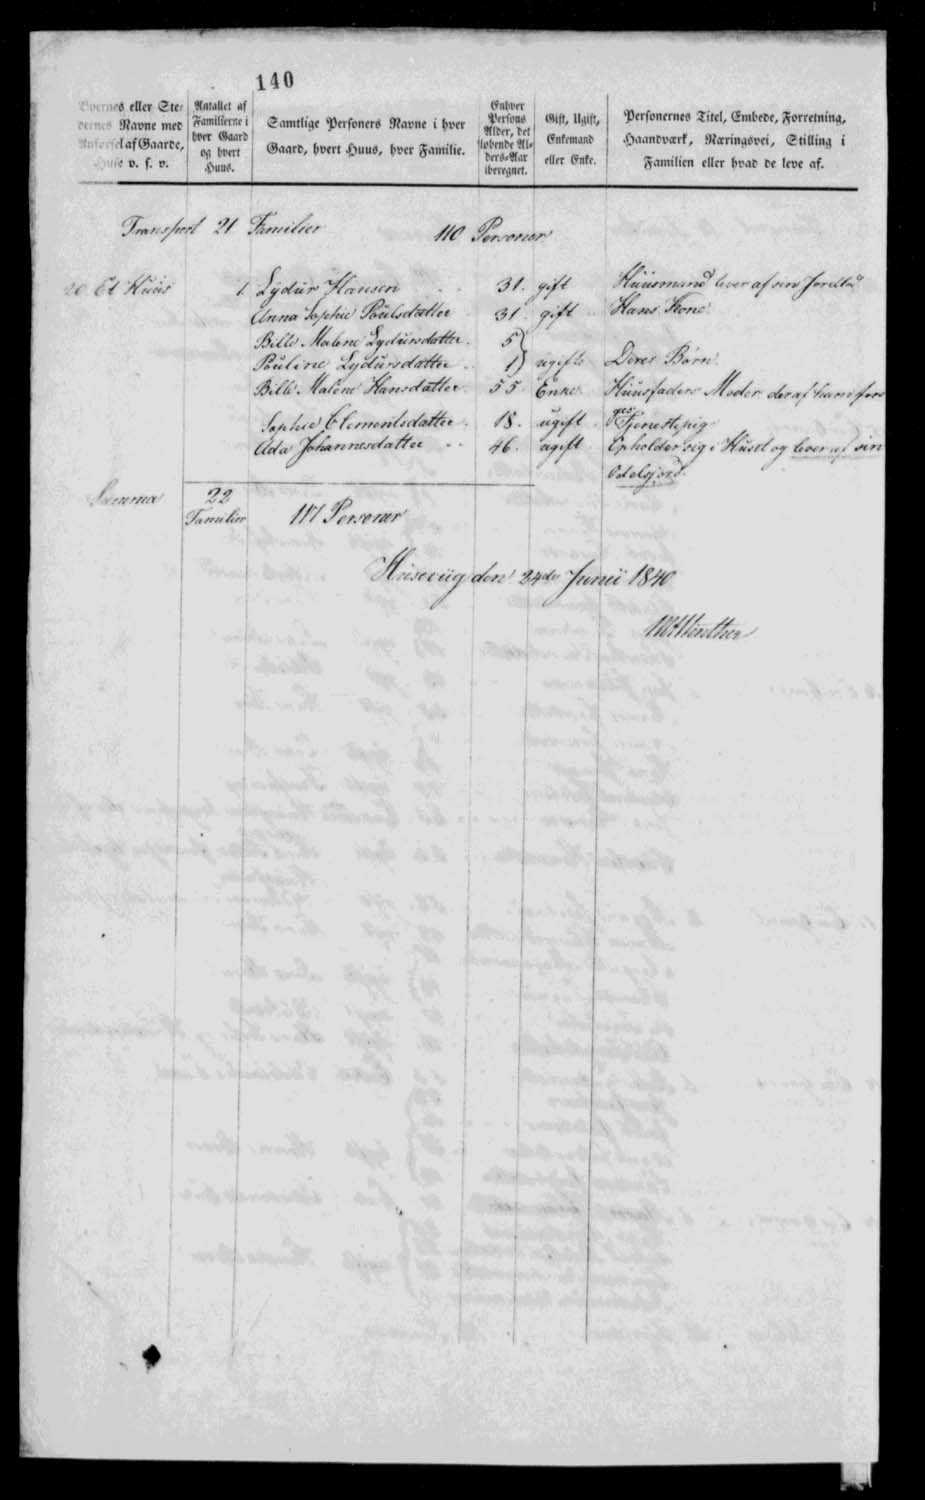 140
Byernes eller Ste-
dernes Navne med
Anførsel af Gaarde,
Huse o. s. v.
Antallet af
Familierne i
hver Gaard
og hvert
Huus.
Samtlige Personers Navne i hver
Gaard, hvert Huus, hver Familie.
Enhver
Persons
Alder, det
løbende Al-
ders-Aar
iberegnet.
Gift, Ugift,
Enkemand
eller Enke.
Personernes Titel, Embede, Forretning,
Haandværk, Næringsvei, Stilling i
Familien eller hvad de leve af.
Transport 21 Familier 110 Personer
20 Et Huus 1 Lydur Hansen 31. gift Huusmand lever af sin Jordlod
Anna Sophie Poulsdatter 31. gift Hans Kone
Bille Malene Lydursdatter 5
Pauline Lydursdatter 1 ugifte Deres Børn
Bille Malene Hansdatter 55 Enke Huusfaders Moder, der af ham fors
ges
Sophie Clementsdatter 18. ugift Tjenestepig
Ada Johannesdatter 46. ugift Opholder sig i Huset og lever af sin
Odelsjord.
Summa 22
Familier 117 Personer
Husevüg den 24de Junii 1840